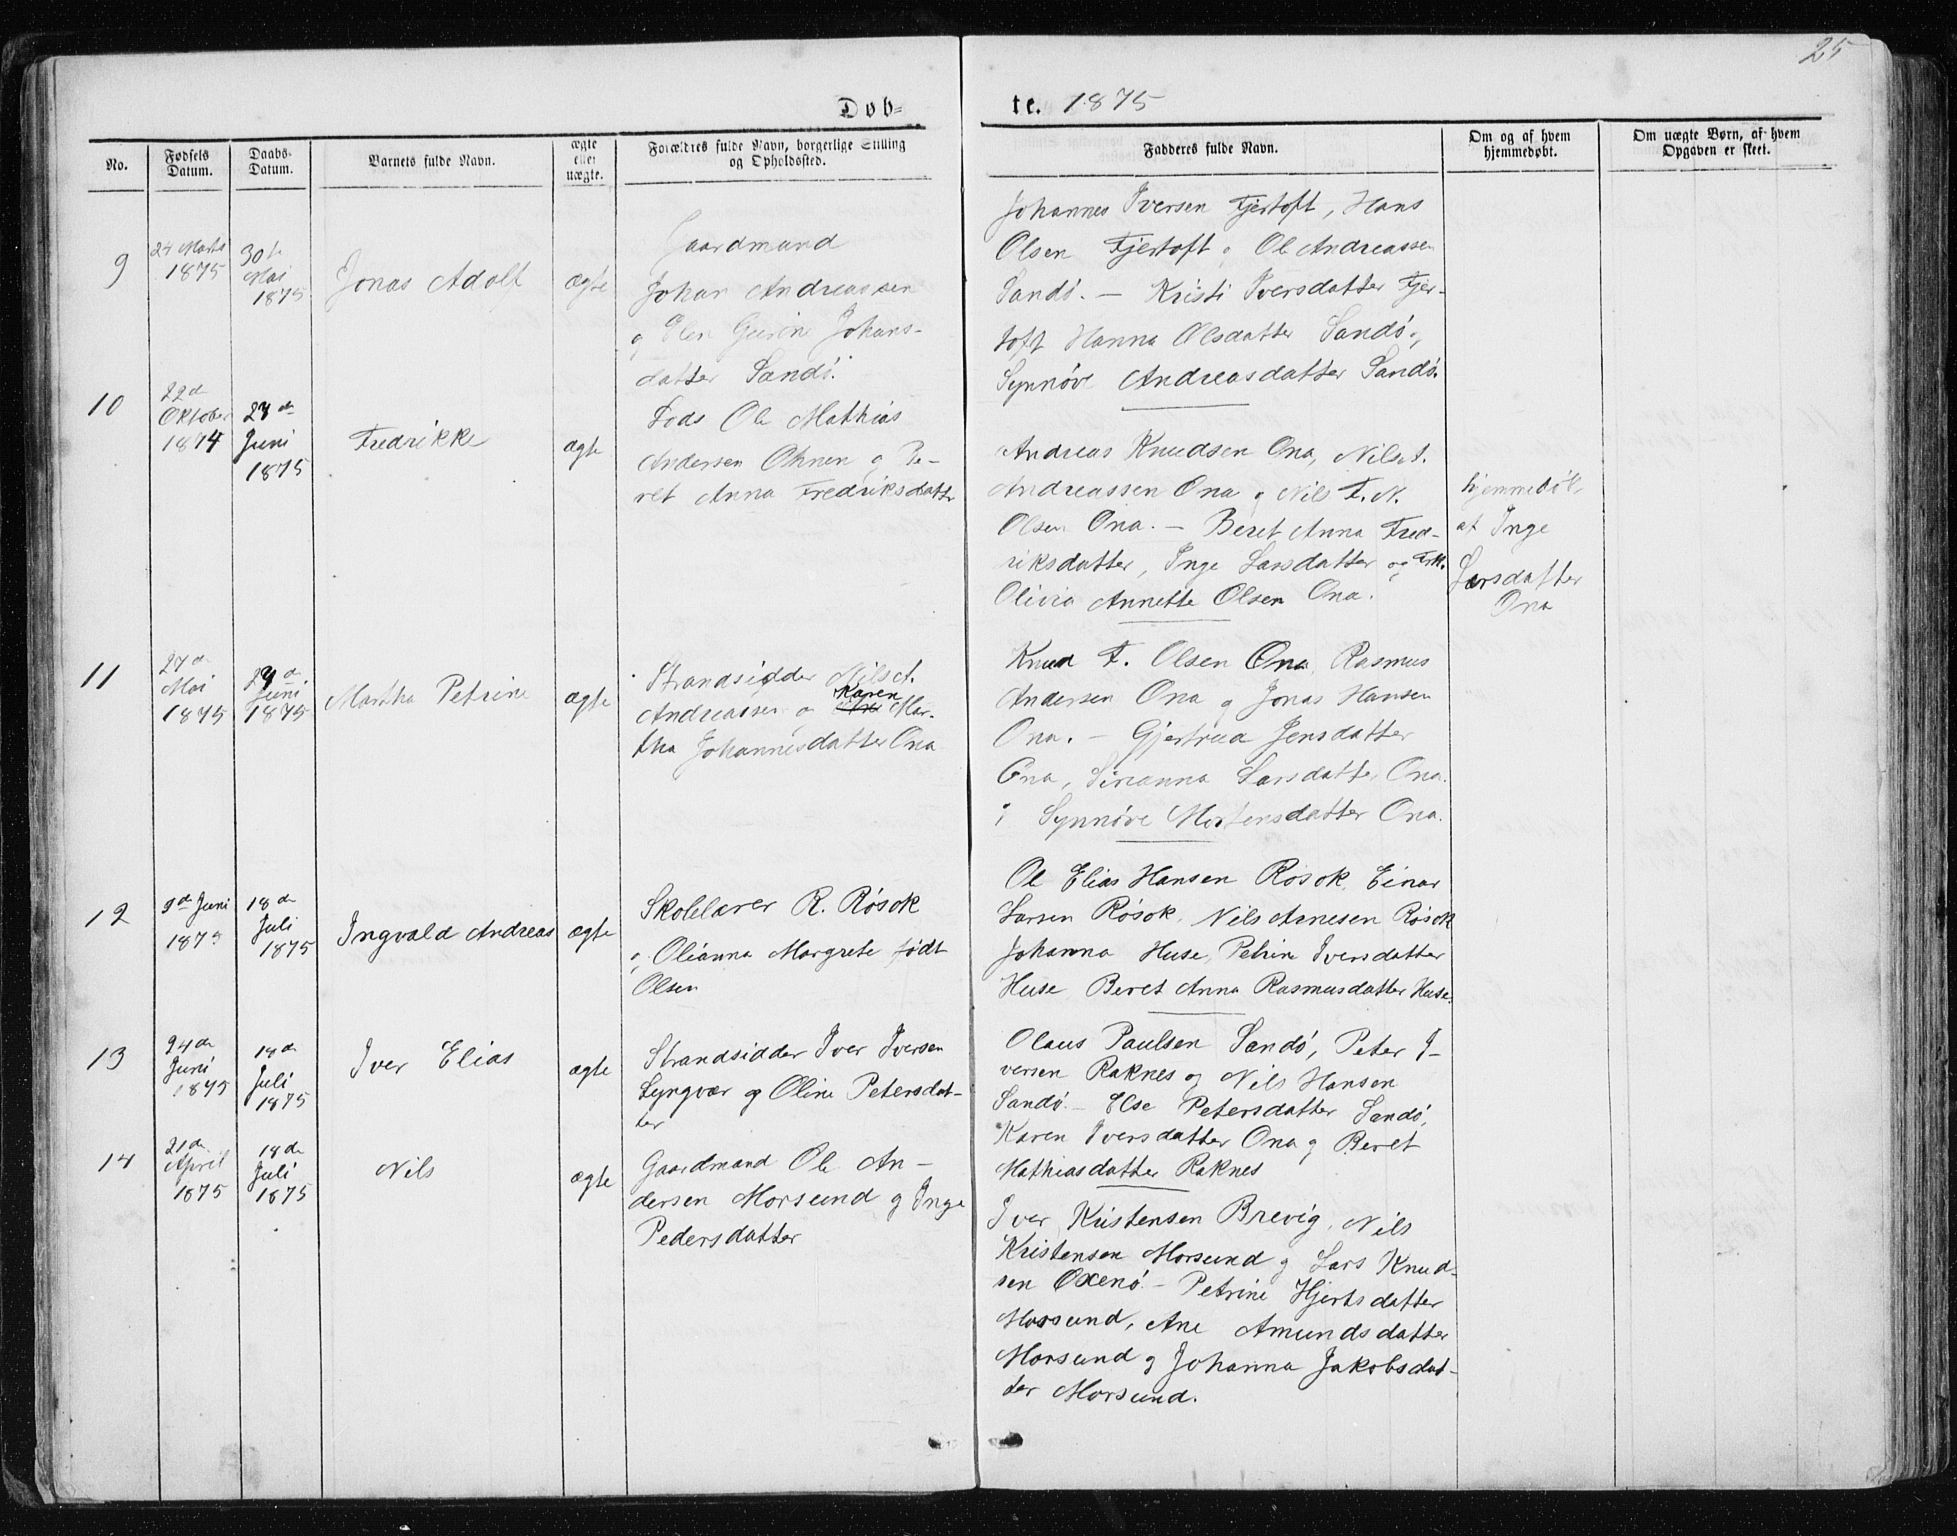 25
Døb=
te. 1875
No.
Fødsels Datum.
Daabs-Datum.
Barnets fulde Navn.
ægte eller uægte.
Forældres fulde Navn, borgerlige Stilling og Opholdssted.
Fadderes fulde Navn.
Om og af hvem hjemmedøbt.
Om uægte Børn, af hvem Opgaven er skeet.
9
24 Marts
1875
30te
Mai
1875
Jonas Adolf
ægte
Gaardmand
Johan Andreassen
og Elen Gurine Johans-
datter Sandö.
Johannes Iversen Fjertoft, Hans
Olsen Fjertoft og Ole Andreassen
Sandö. — Kristi Iversdatter Fjer-
toft Hanna Olsdatter Sandö og
Synnöve Andreasdatter Sandö.
10
22de
Oktober
1874
27de
Juni
1875
Fredrikke
ægte
Lods Ole Mathias
Andersen Ohnen og Be-
ret Anna Fredriksdatter
Andreas Knudsen Ona, Nils A.
Andreassen Ona og Nils F. N.
Olsen Ona. — Beret Anna Fred-
riksdatter, Inge Larsdatter og Frk.
Olivia Annette Olsen Ona.
hjemmedöbt
af Inge
Larsdatter
Ona
11
27de
Mai
1875
27de
Juni
1875
Martha Petrine
ægte
Strandsidder Nils A.
Karen
Andreassen og Mar-
tha Johannesdatter Ona
Knud F. Olsen Ona Rasmus
Andersen Ona og Jonas Hansen
Ona. — Gjertrud Jensdatter
Ona, Sirianna Larsdatter Ona.
og Synnöve Mortensdatter Ona.
12
9de Juni
1875
18de
Juli
1875
Ingvald Andreas
ægte
Skolelærer R. Rösok
og Olianna Margrete födt
Olsen
Ole Elias Hansen Rösok, Einar
Larsen Rösok, Nils Arnesen Rösok
Johanna Huse, Petrine Iversdatter
Huse Beret Anna Rasmusdatter Huse.
13
24de
Juni
1875
18de
Juli
1875
Iver Elias
ægte
Strandsidder Iver Iversen
Lyngvær og Oline Petersdat-
ter
Olaus Paulsen Sandö, Peter I-
versen Raknes og Nils Hansen
Sandö. — Else Petersdatter Sandö,
Karen Iversdatter Ona og Beret
Mathiasdatter Raknes
14
21de
April
1875
18de
Juli
1875
Nils
ægte
Gaardmand Ole An-
dersen Morsund og Inge
Pedersdatter
Iver Kristensen Brevig, Nils
Kristensen Morsund og Lars Knud-
sen Oxenö — Petrine Hjertsdatter
Morsund, Ane Amundsdatter
Morsund og Johanna Jakobsdat-
ter Morsund.